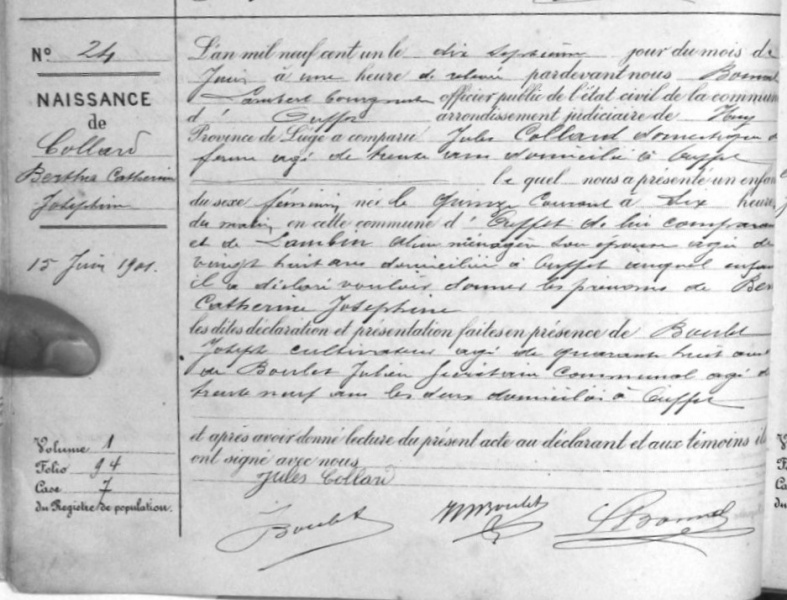 N° 24
NAISSANCE
de
Collard
Berthe Catherine
Joséphine
15 Juin 1901.
Volume 1
Folio 94
Case 7
du Registre de population.
L'an mil neuf cent un le dix septième jour du mois de
Juin à une heure de relevée pardevant nous Bonmal
Lambert bourgmestre officier public de l'état civil de la commune
d' Ouffet arrondissement judiciaire de Huy
Province de Liége a comparu Jules Collard domestique de
ferme agé de trente ans domicilié à Ouffet
le quel nous a présenté un enfant
du sexe féminin née le quinze Courant à six heures
du matin en cette commune d'Ouffet de lui comparant
et de Lambin ménagère son épouse agée de
vingt huit ans domiciliée à Ouffet auquel enfant
il a déclaré vouloir donner les prénoms de Ber
Catherine Joséphine
les dites déclaration et présentation faites en présence de Boulet
Joseph cultivateur agé de quarante huit ans
de Boulet Julien Secrétaire Communal agé de
trente neuf ans les deux domiciliés à Ouffet
et après avoir donné lecture du présent acte au déclarant et aux témoins ils
ont signé avec nous
Jules Collard
J Boulet Boulet L Bonmal